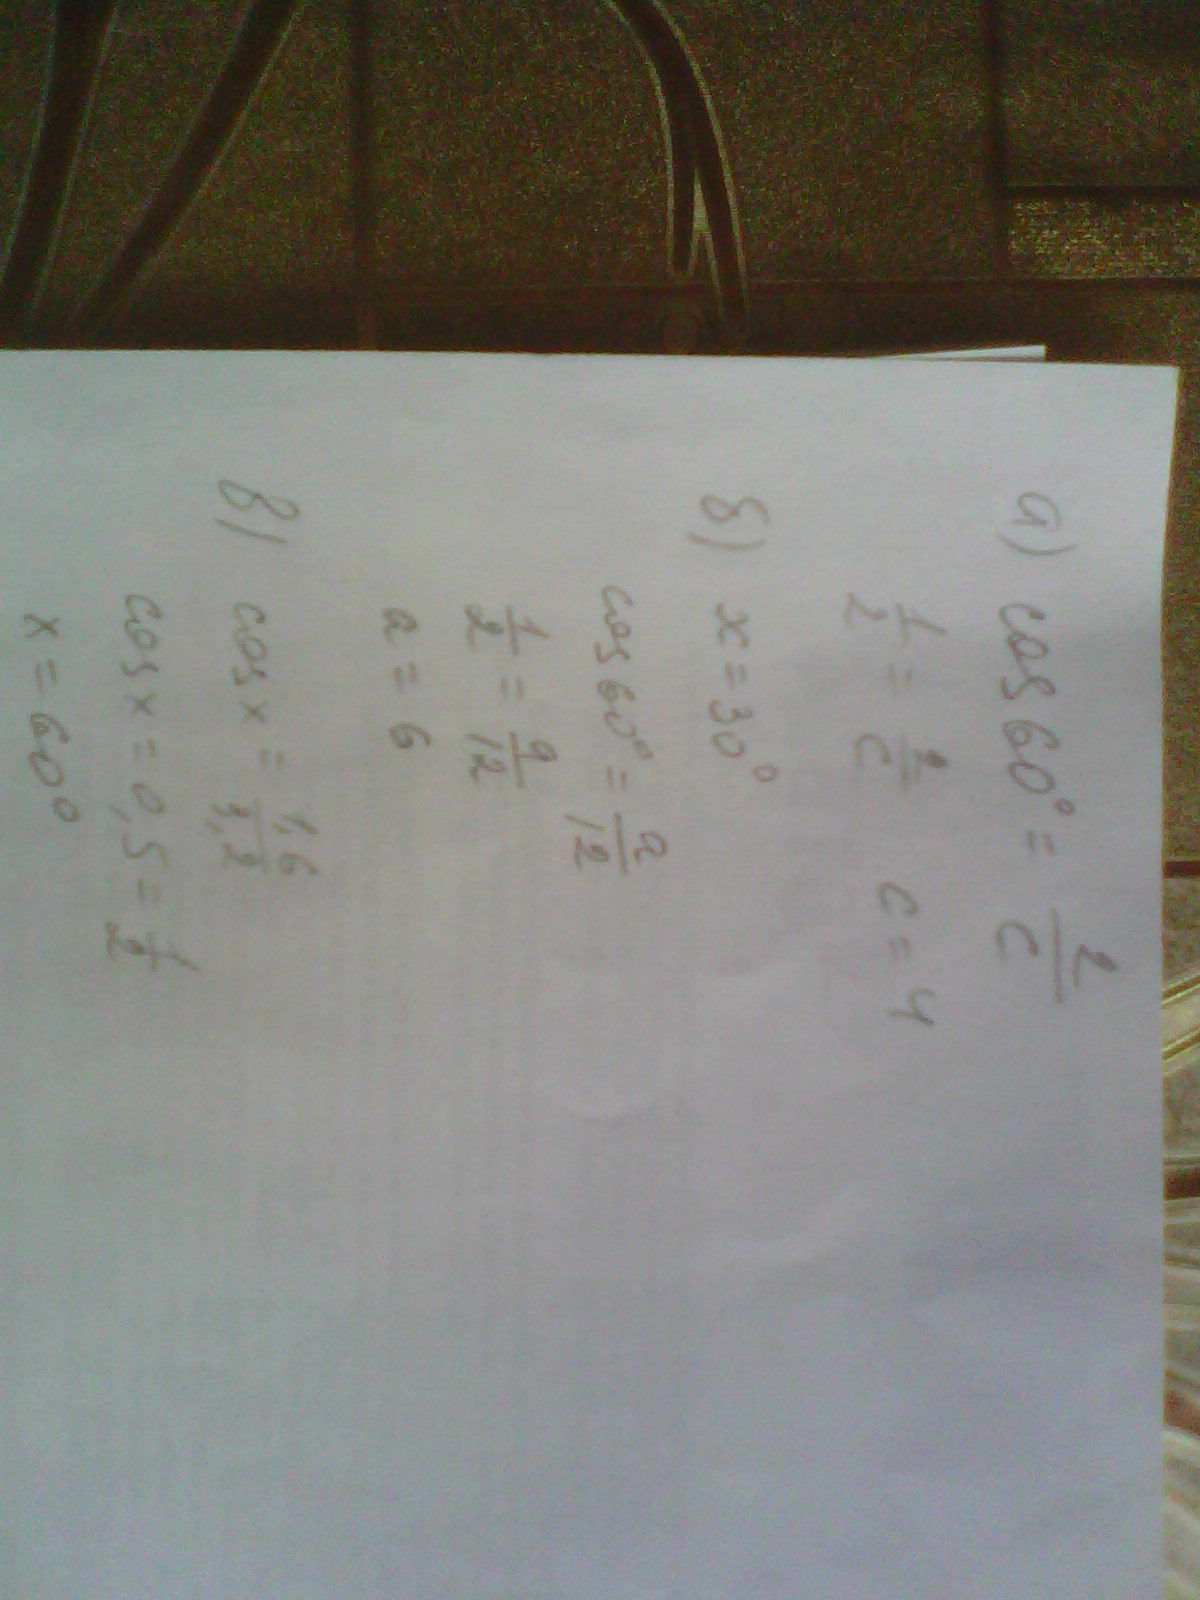 а) cos 60° = 2/c
1/2 = 2/c c = 4
б) x = 30°
cos 60° = a/12
1/2 = a/12
a = 6
в) cos x = 1,6/3,2
cos x = 0,5 = 1/2
x = 60°